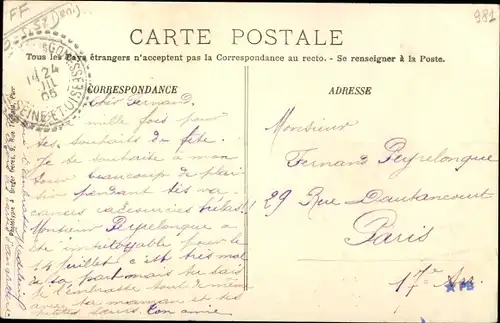 FF
981
CARTE POSTALE
Tous les Pays étrangers n'acceptent pas la Correspondance au recto. - Se renseigner à la Poste.
CORRESPONDANCE
ADRESSE
24
SEINE-ET-OISE
Cher Fernand
mille fois pour
tes souhaits de fête.
Je te souhaite à mon
tour beaucoup de plai-
sir pendant tes va-
cances
Monsieur Peyrelongue a
été impitoyable pour le
14 juillet c'est très mal
de sa part mais tu sais
je t'embrasse tout de même
avec ta maman et tes
petites sœurs. Ton amie
Monsieur
Fernand Peyrelongue
29 Rue Dautancourt
Paris
17e Arr.
PB